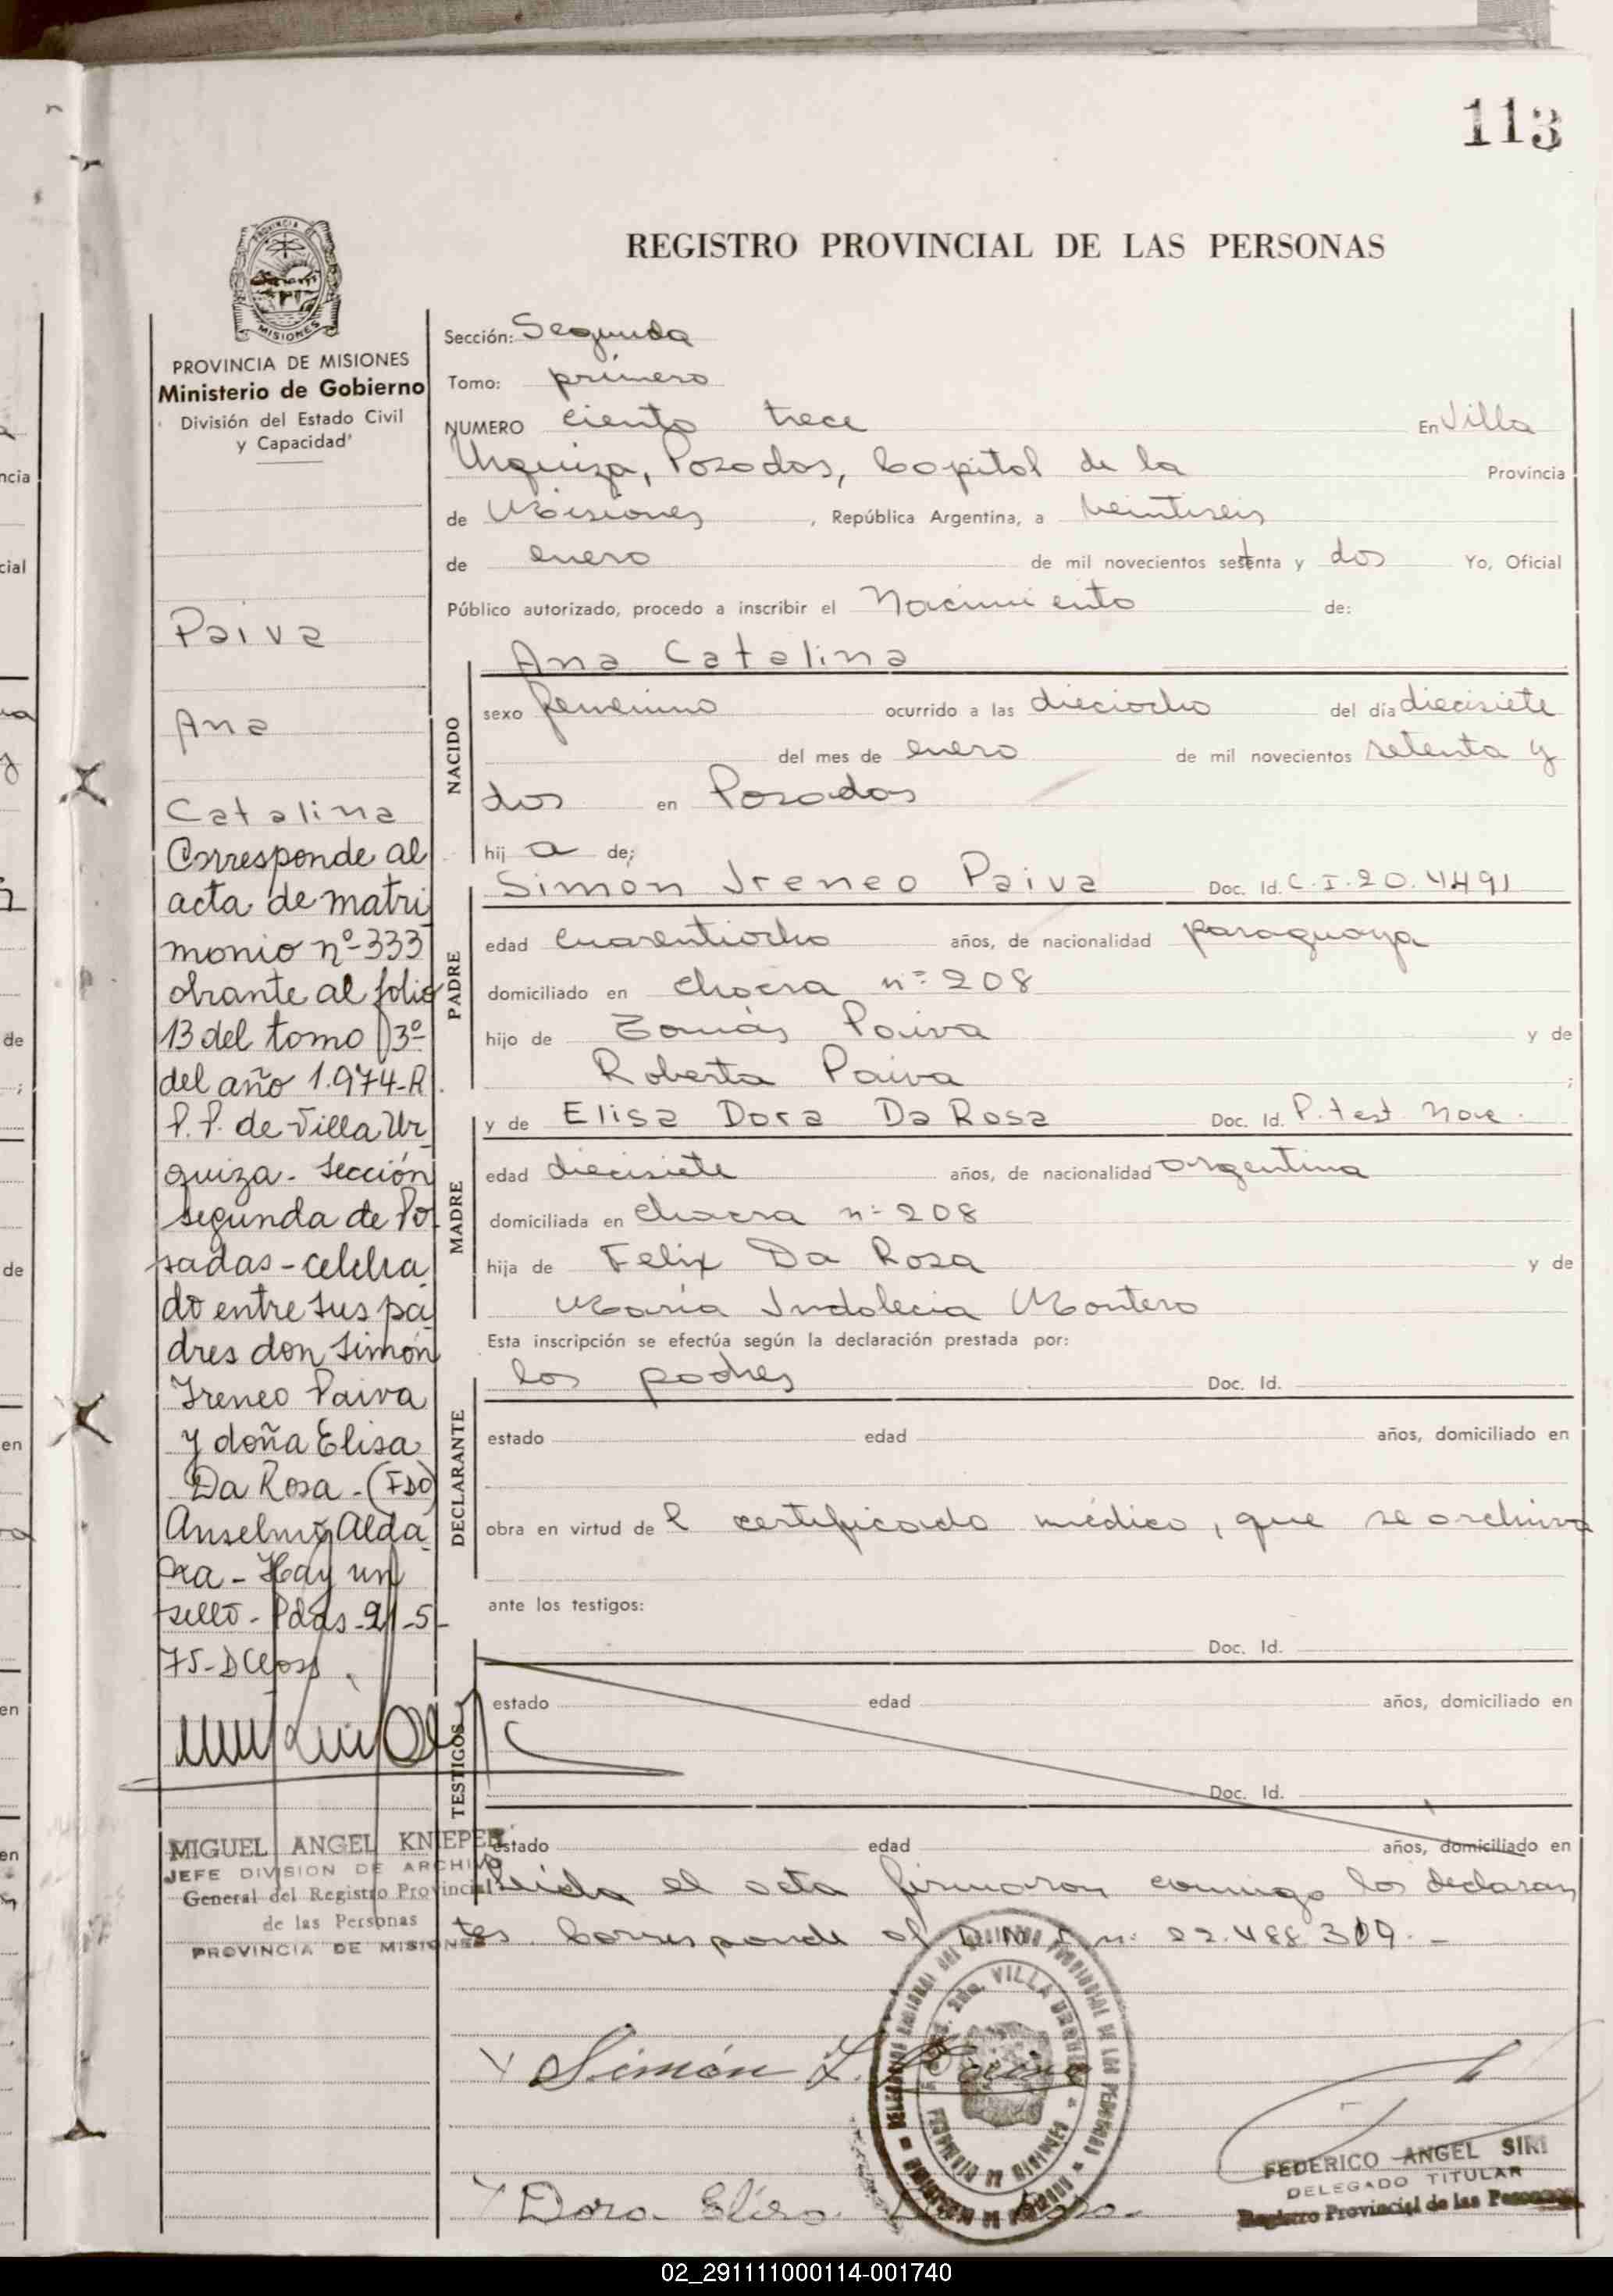 113
REGISTRO PROVINCIAL DE LAS PERSONAS
PROVINCIA DE MISIONES
Ministerio de Gobierno
División del Estado Civil
y Capacidad
Paiva
Ana
Catalina
Corresponde al
acta de matri
monio nº 333
obrante al folio
13 del tomo 3º
del año 1.974-R.
P.P. de Villa Ur
quiza - Sección
segunda de Po
sadas - celebra
do entre sus pa
dres don Simón
Ireneo Paiva
y doña Elisa
Da Rosa - (FDO)
Anselmo Alda
- Hay un
sello - Pdas - 21-5-
75-
MIGUEL ANGEL KNIEPER
JEFE DIVISION DE ARCHIVO
General del Registro Provincial
de las Personas
PROVINCIA DE MISIONES
Sección: Segunda
Tomo: primero
NUMERO ciento trece En Villa
Urquiza, Posadas, Capital de la Provincia
de Misiones, República Argentina, a veintiseis
de enero de mil novecientos setenta y dos Yo, Oficial
Público autorizado, procedo a inscribir el Nacimiento de:
Ana Catalina
NACIDO
sexo femenino ocurrido a las dieciocho del día diecisiete
del mes de enero de mil novecientos setenta y
dos en Posadas
hij a de;
Simón Ireneo Paiva Doc. Id. C.I. 20.4491
PADRE
edad cuarentiocho años, de nacionalidad paraguaya
domiciliado en chacra nº 208
hijo de Tomás Paiva y de
Roberta Paiva ;
y de Elisa Dora Da Rosa Doc. Id. P. test Nac.
MADRE
edad diecisiete años, de nacionalidad argentina
domiciliada en chacra nº 208
hija de Felix Da Rosa y de
María Indolecia Montero
Esta inscripción se efectúa según la declaración prestada por:
los padres Doc. Id.
DECLARANTE
estado edad años, domiciliado en
obra en virtud de l certificado médico, que se archiva
ante los testigos:
Doc. Id.
TESTIGOS
estado edad años, domiciliado en
Doc. Id.
estado edad años, domiciliado en
Leida el acta firmaron conmigo los declaran
tes. Corresponde al D.N.I. n: 22.488.319.-
Simón I. Paiva
Dora Elisa Da Rosa.
VILLA URQUIZA
FEDERICO ANGEL SIRI
DELEGADO TITULAR
Registro Provincial de las Personas
02_291111000114-001740